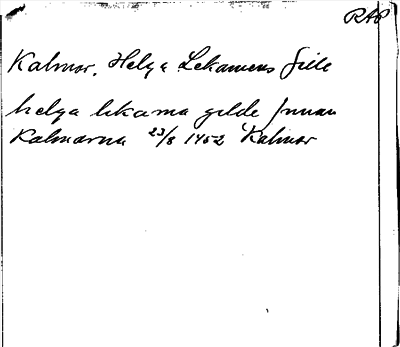 RAP
Kalmar, Helga Lekamens Gille
helga lekama gilde Innan
Kalmarna 23/8 1452 Kalmar